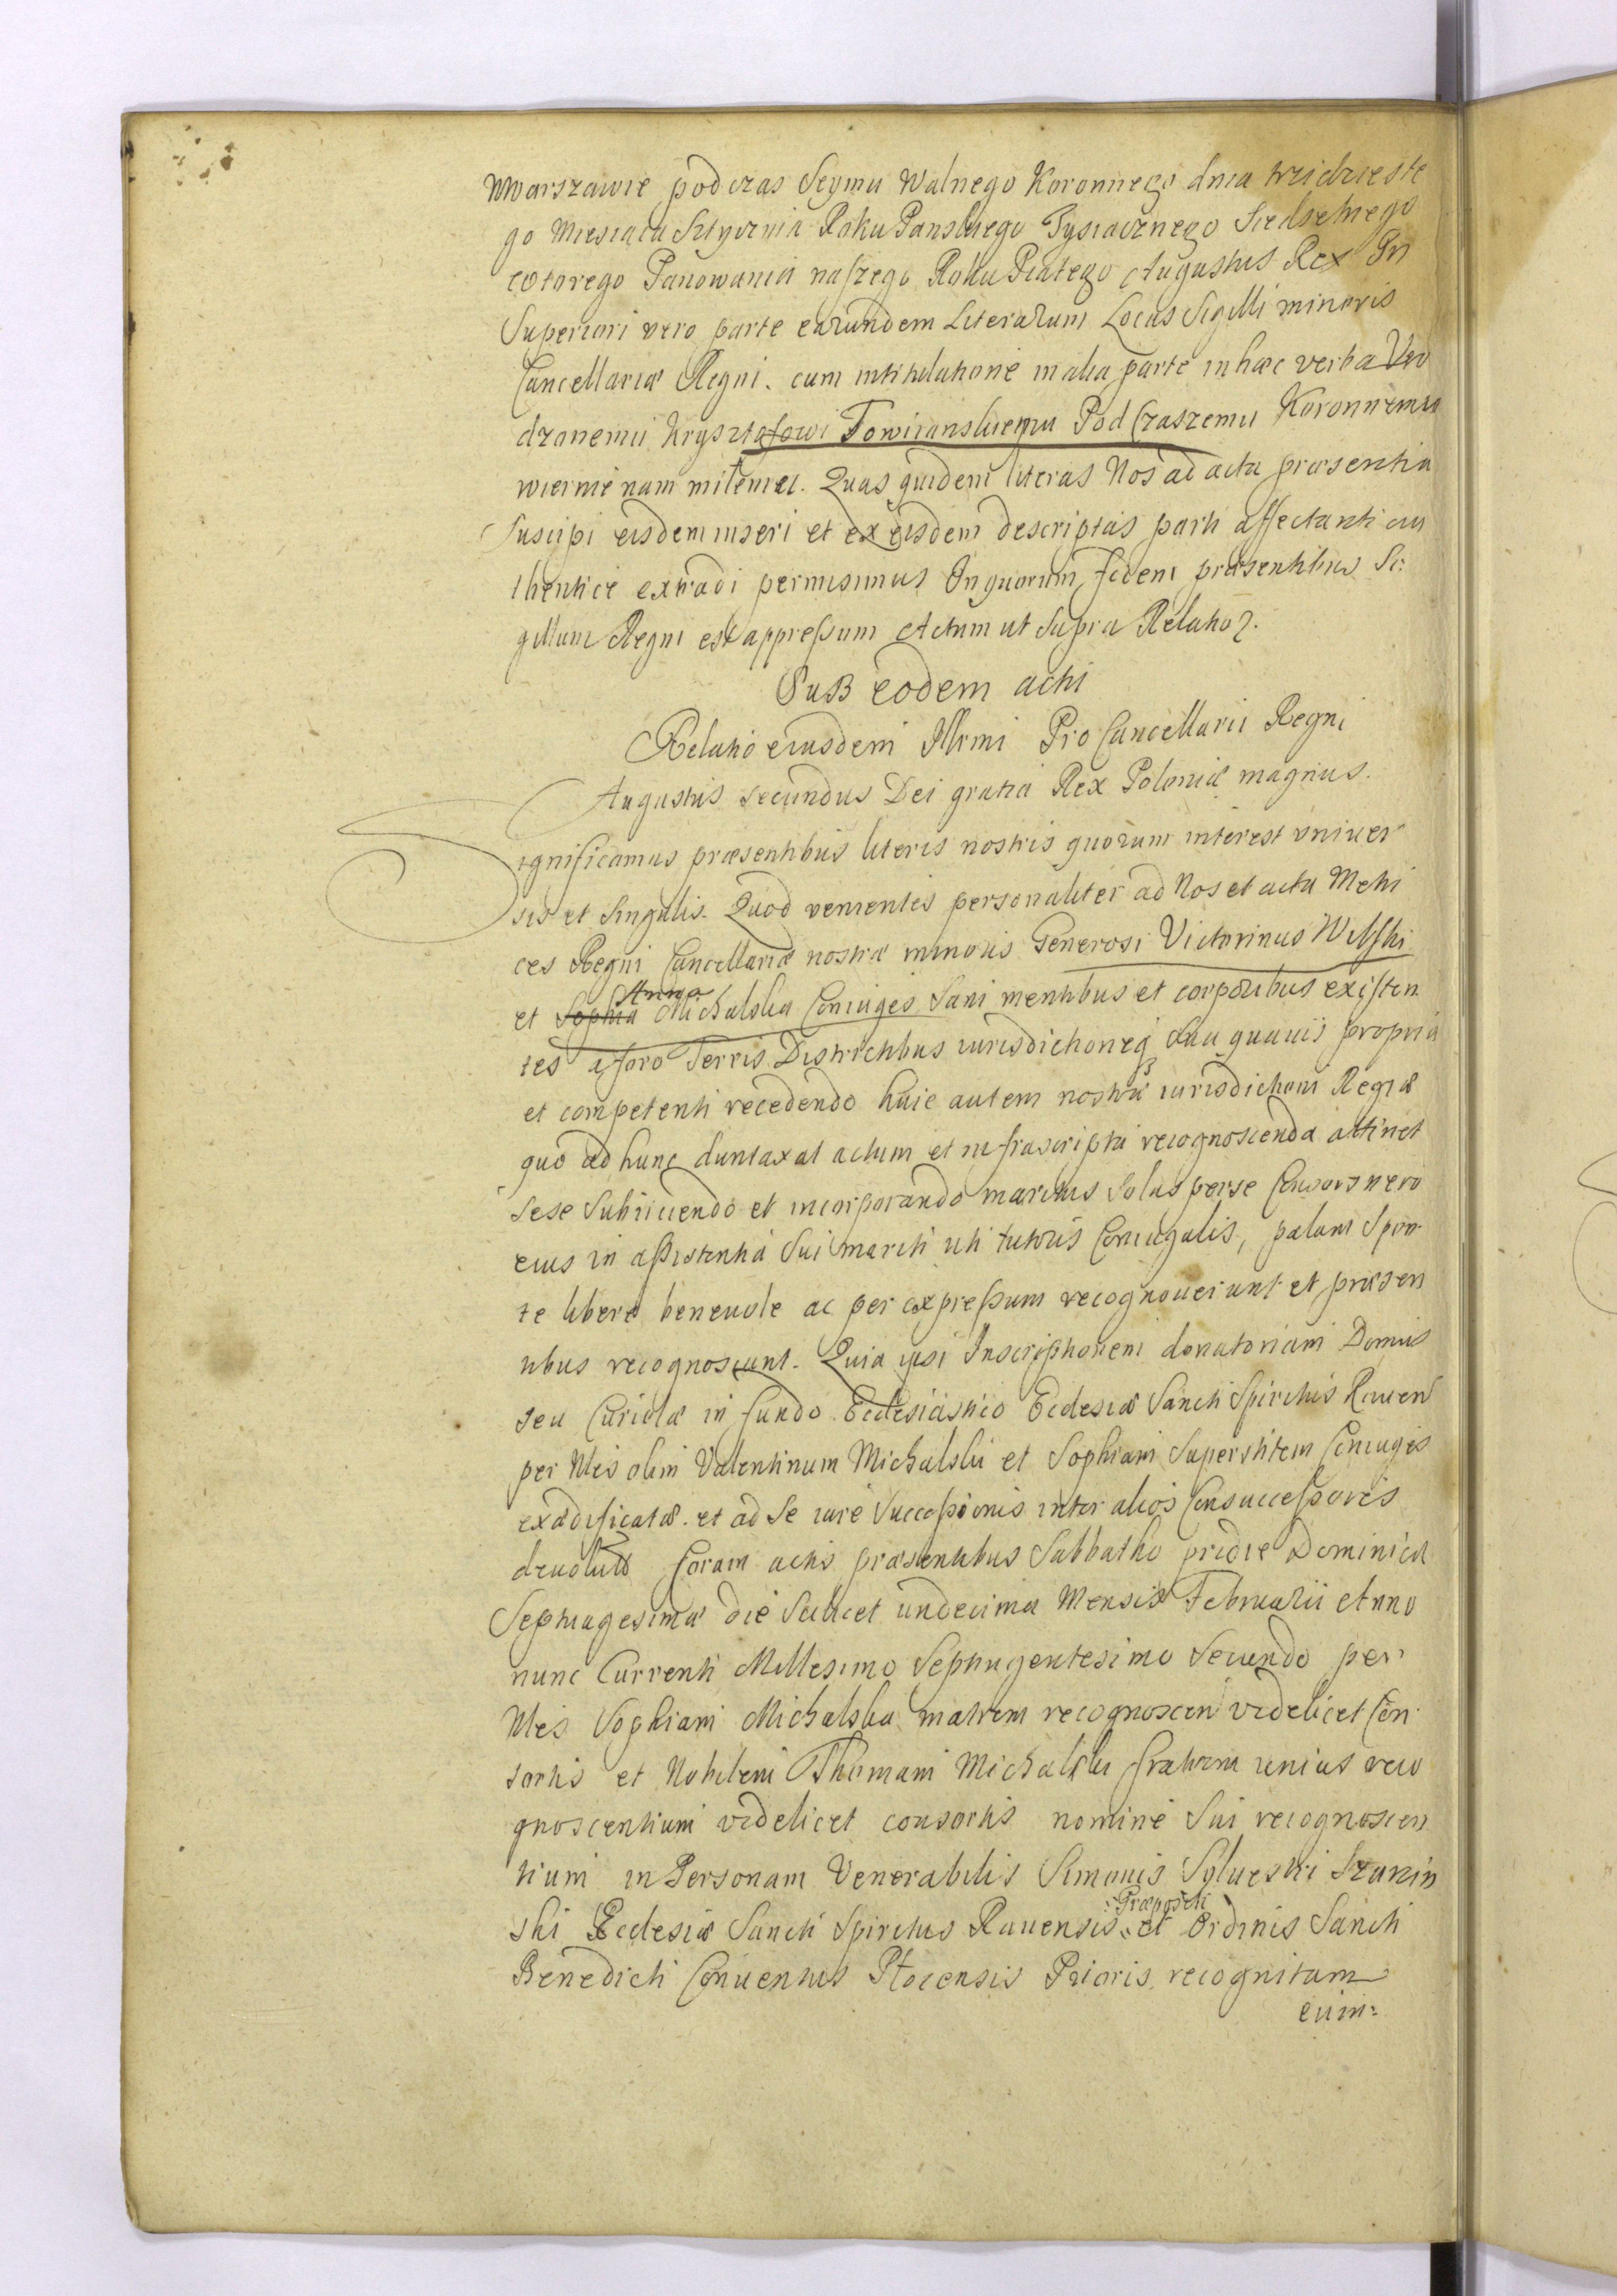 Wwarszawie podczas Seymu Walnego Koronnego dnia trzidzieste
go Miesiąca Stycznia Roku Panskiego Tysiącznego Siedmsetnego
wtorego Panowania naszego Roku Piątego Augustus Rex In
Superiori vero parte earundem Literarum Locus Sigilli minoris
Cancellariæ Regni. cum intitulatione in alia parte in hæc verba Uro
dzonemu Krysztofowi Towianskiemu Pod Czaszemu Koronnemu
wiernie nam miłemu. Quas quidem literas Nos ad acta præsentia
suscipi eisdem inseri et ex eisdem descriptas parti affectanti au
thentice extradi permisimus In quorum fidem præsentibus Si:
gillum Regni est appressum Actum ut supra Relatio
Sub eodem acti
Relatio eiusdem Illrmi Pro Cancellarii Regni
Augustus secundus Dei gratia Rex Poloniæ magnus.
Significamus præsentibus literis nostris quorum interest univer
sis et singulis. Quod venientes personaliter ad Nos et acta Metri
ces Regni Cancellariæ nostræ minoris Generosi Victorinus Wilski
et Sophia Anna Michalska Coniuges sani mentibus et corporibus existen
tes a foro Terris Districtibus iurisdictioneq sua quavis propria
et competenti recedendo huic autem nostræ iurisdictioni Regiæ
quo ad hunc duntaxat actum et infrascripta recognoscenda attinet
sese subiiciendo et incorporando maritus solus per se Consors vero
eius in assistentia sui mariti uti tutoris Coniugalis, palam spon
te libere benevole ac per expressum recognoverunt et præsen
tibus recognoscunt. Quia ipsi Inscriptionem donatoriam Domus
seu Curiolæ in fundo Ecclesiastico Ecclesiæ Sancti Spiritus Raven
per Nles olim Valentinum Michalski et Sophiam Superstitem Coniuges
exædificatæ. et ad se iure successionis inter alios Consuccessores
devolutæ Coram actis præsentibus Sabbatho pridie Dominicæ
Septuagesimæ die scilicet undecima Mensis Februarii Anno
nunc Currenti Millesimo Septingentesimo Secundo per
Nles Sophiam Michalska matrem recognoscen videlicet Con
sortis et Nobilem Thomam Michalski fratrem unius reco
gnoscentium videlicet consortis nomine sui recognoscen
tium in Personam Venerabilis Simonis Sylvestri Szunin
ski Ecclesiæ Sancti Spiritus Ravensis :Præpositi et Ordinis Sancti
Benedicti Conventus Plocensis Prioris recognitam
eum: